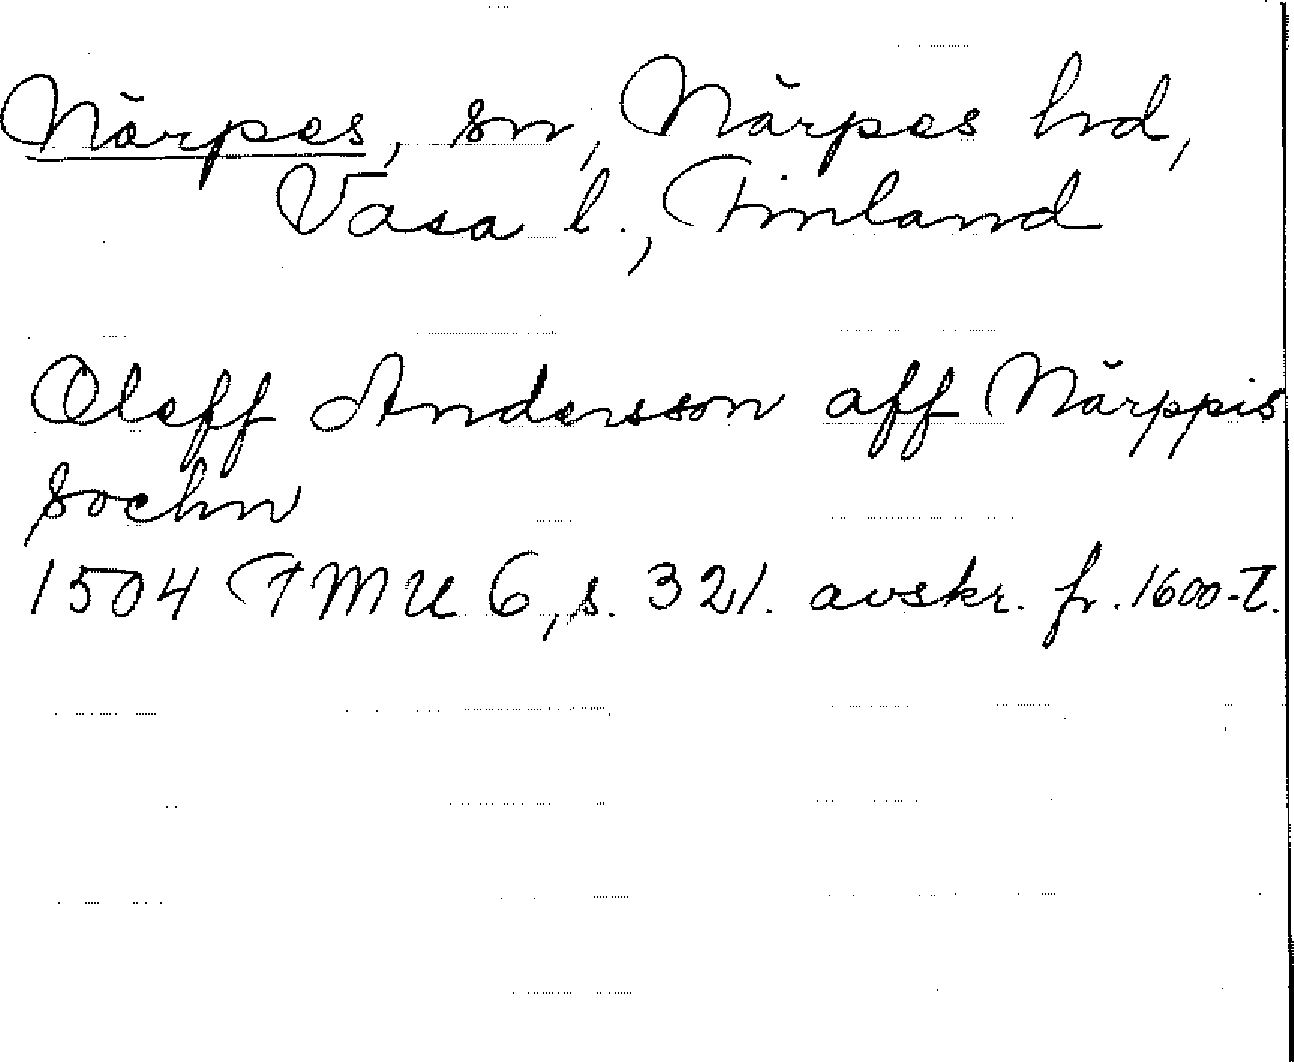 Närpes, sn, Närpes hrd,
Vasa l., Finland
Oleff Andersson aff Närppis
sochn
1504 FMU 6, s. 321. avskr. fr. 1600-t.